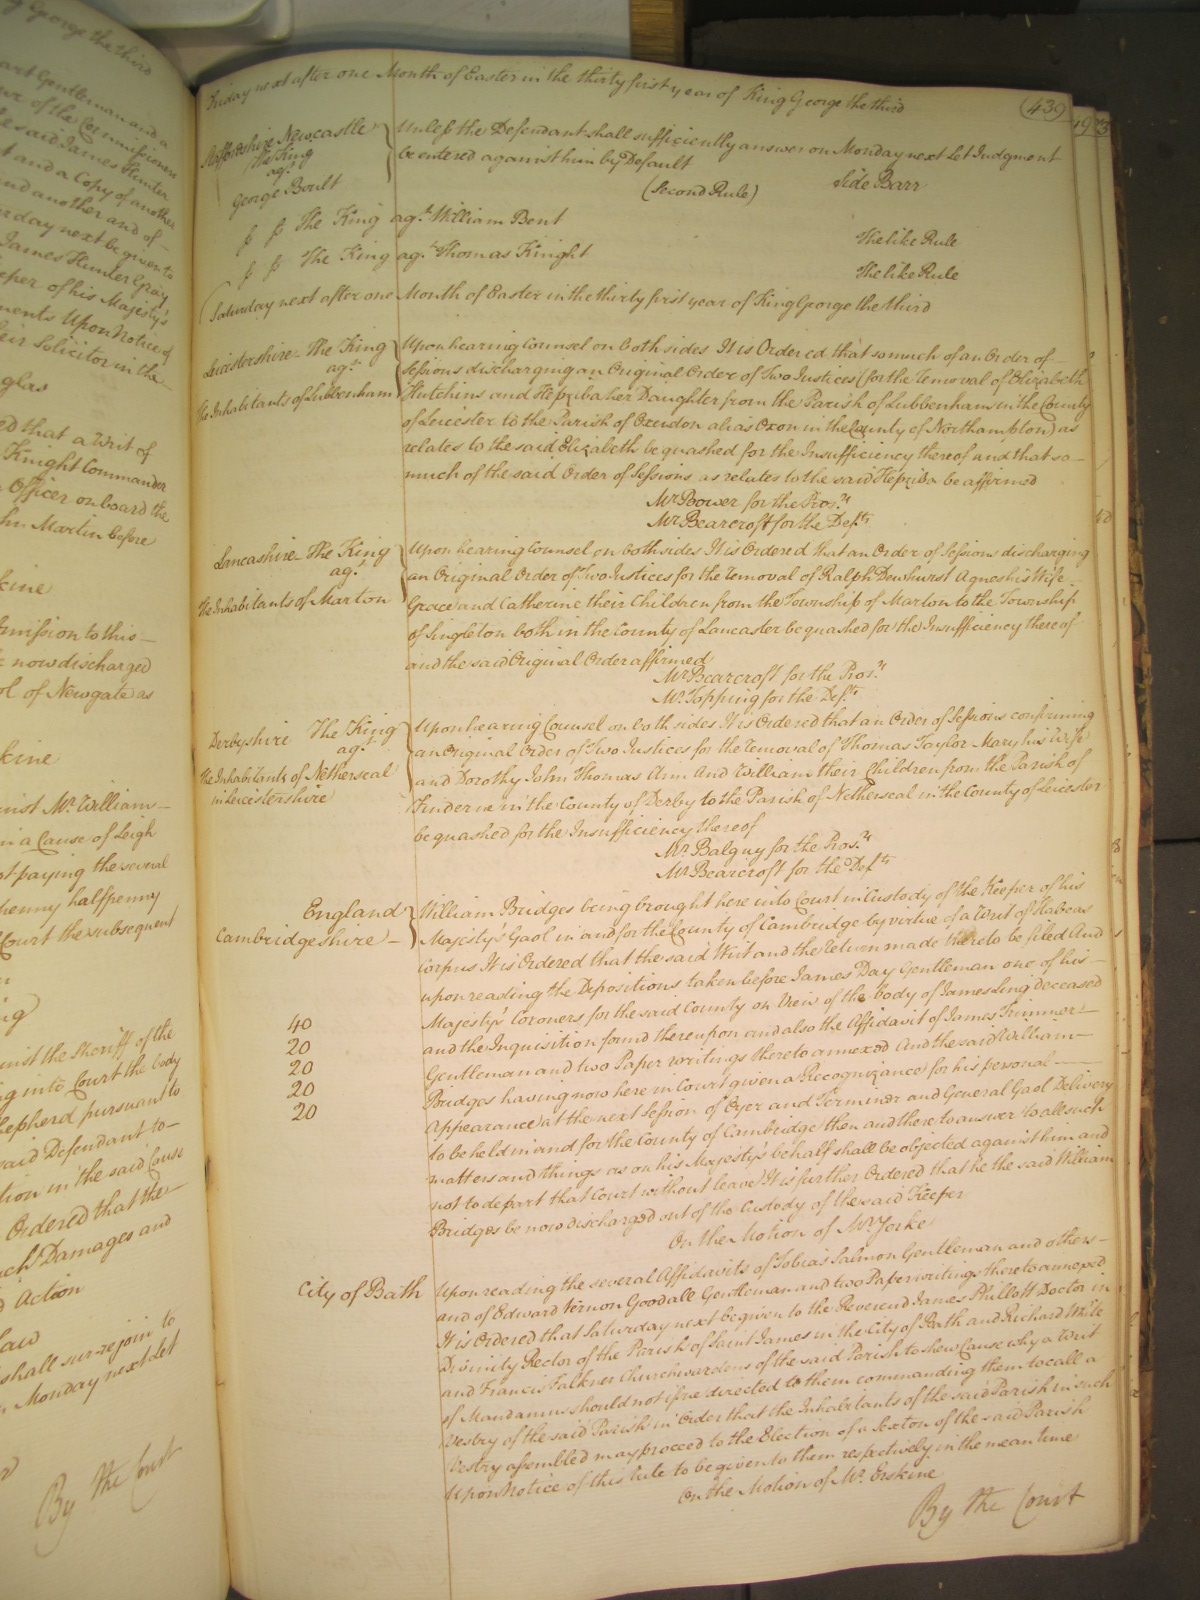 Friday next after one Month of Easter in the thirty first year of King George the third
(439)
Staffordshire Newcastle
The King
agt
George Boult
Unless the Defendant shall sufficiently answer on Monday next Let Judgment
be entered against him by Default
(Second Rule)
Side Barr
ss ss The King agt William Bent
The like Rule
ss ss The King agt Thomas Knight
The like Rule
Saturday next after one Month of Easter in the thirty first year of King George the third
Leicestershire The King
agt
The Inhabitants of Lubbenham
Upon hearing Counsel on both sides It is Ordered that so much of an Order of
Sessions discharging an Original Order of Two Justices (for the removal of Elizabeth
Hutchins and Hepziba her Daughter from the Parish of Lubbenham in the County
of Leicester to the Parish of Oxendon alias Oxon in the County of Northampton) as
relates to the said Elizabeth be quashed for the Insufficiency thereof and that so
much of the said Order of Sessions as relates to the said Hepziba be affirmed
Mr Bower for the Prosrs
Mr Bearcroft for the Defts
Lancashire The King
agt
The Inhabitants of Marton
Upon hearing Counsel on both sides It is Ordered that an Order of Sessions discharging
an Original Order of Two Justices for the removal of Ralph Dewhurst Agnes his Wife
Grace and Catherine their Children from the Township of Marton to the Township
of Singleton both in the County of Lancaster be quashed for the Insufficiency thereof
and the said Original Order affirmed
Mr Bearcroft for the Prosrs
Mr Topping for the Defts
Derbyshire The King
agt
The Inhabitants of Netherseal
in Leicestershire
Upon hearing Counsel on both sides It is Ordered that an Order of Sessions confirming
an Original Order of Two Justices for the removal of Thomas Taylor Mary his Wife
and Dorothy John Thomas Ann And William their Children from the Parish of
Findern in the County of Derby to the Parish of Netherseal in the County of Leicester
be quashed for the Insufficiency thereof
Mr Balguy for the Prosrs
Mr Bearcroft for the Defts
England
Cambridgeshire
William Bridges being brought here into Court in Custody of the Keeper of his
Majesty's Gaol in and for the County of Cambridge by virtue of a Writ of Habeas
Corpus It is Ordered that the said Writ and the Return made thereto be filed And
upon reading the Depositions taken before James Day Gentleman one of his
Majesty's Coroners for the said County on View of the body of James Ling deceased
and the Inquisition found thereupon and also the Affidavit of James Trimmer
Gentleman and two Paper writings thereto annexed And the said William
Bridges having now here in Court given a Recognizance for his personal
Appearance at the next Session of Oyer and Terminer and General Gaol Delivery
to be held in and for the County of Cambridge then and there to answer to all such
matters and things as on his Majesty's behalf shall be objected against him and
not to depart that Court without leave It is further Ordered that he the said William
Bridges be now discharged out of the Custody of the said Keeper
40
20
20
20
20
On the Motion of Mr Yorke
City of Bath
Upon reading the several Affidavits of Tobias Salmon Gentleman and others
and of Edward Vernon Goodall Gentleman and two Paper writings thereto annexed
It is Ordered that Saturday next be given to the Reverend James Phillott Doctor in
Divinity Rector of the Parish of Saint James in the City of Bath and Richard White
and Francis Falkner Churchwardens of the said Parish to shew Cause why a Writ
of Mandamus should not issue directed to them commanding them to call a
Vestry of the said Parish in Order that the Inhabitants of the said Parish in such
Vestry assembled may proceed to the Election of a Sexton of the said Parish
Upon Notice of this rule to be given to them respectively in the mean time
On the Motion of Mr Erskine
By the Court